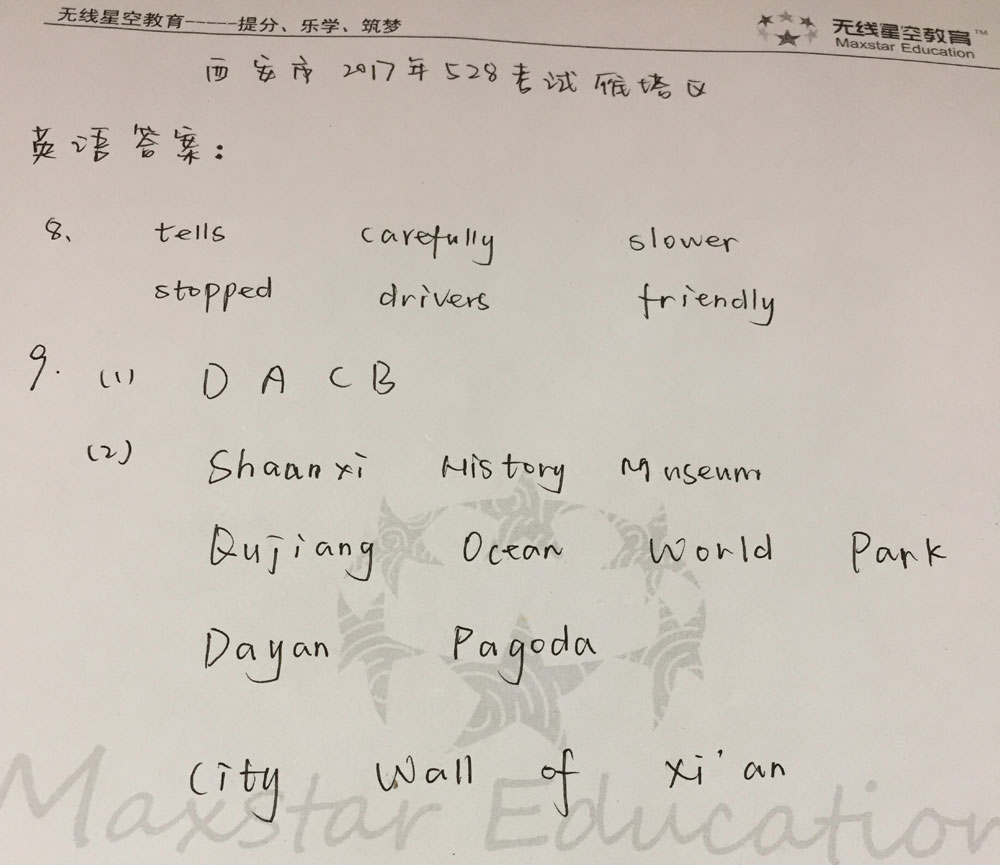 无线星空教育-----提分、乐学、筑梦
无线星空教育™
Maxstar Education
西安市2017年528考试雁塔区
英语答案：
8、 tells carefully slower
stopped drivers friendly
9. (1) D A C B
(2) Shaanxi History Museum
Qujiang Ocean World Park
Dayan Pagoda
City Wall of Xi'an
Maxstar Education